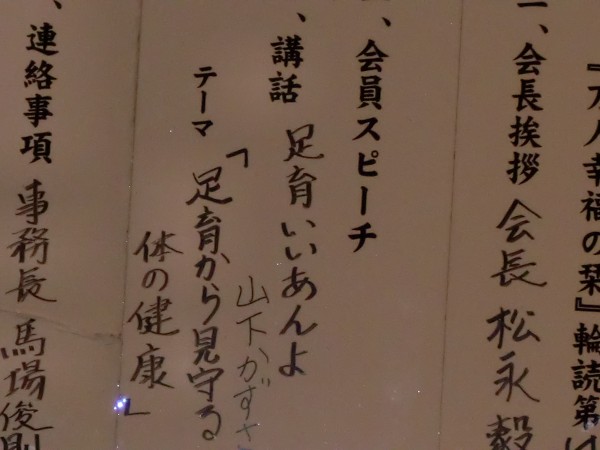 『万人幸福の栞』輪読第
一、会長挨拶 会長 松永毅
、会員スピーチ
、講話 足育いいあんよ
山下かずさ
テーマ 「足育から見守る
体の健康」
、連絡事項 事務長 馬場俊則